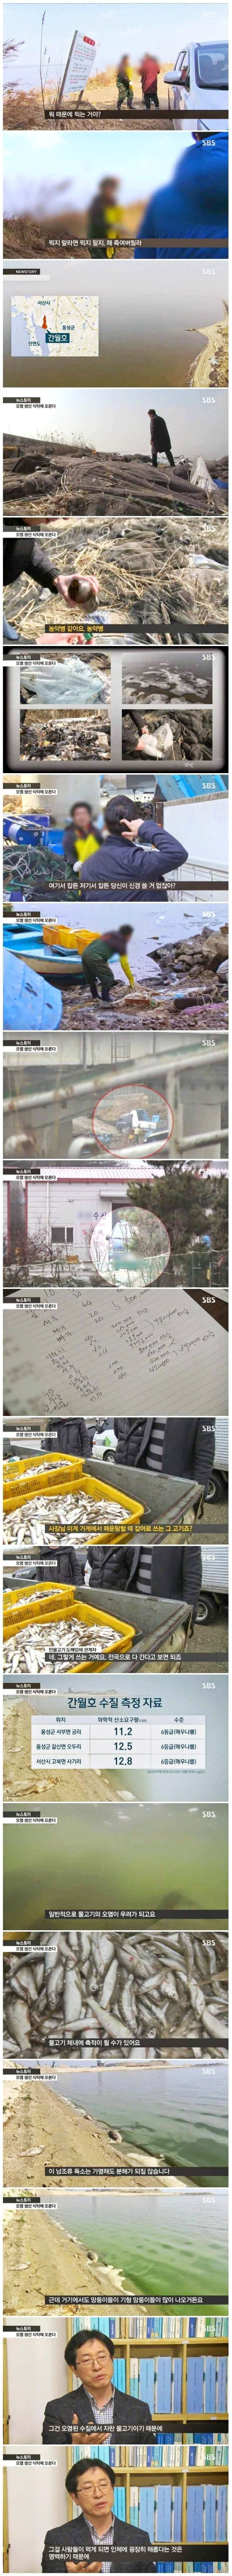 뭐 때문에 찍는 거야?
SBS
찍지 말라면 찍지 말지, 왜 죽여버릴라
NEWSTORY
SBS
서산시
홍성군
간월호
안면도
뉴스토리
오염 생선 식탁에 오른다
SBS
뉴스토리
오염 생선 식탁에 오른다
SBS
농약병 같아요, 농약병
뉴스토리
오염 생선 식탁에 오른다
SBS
뉴스토리
오염 생선 식탁에 오른다
SBS
여기서 잡든 저기서 잡든 당신이 신경 쓸 거 없잖아?
뉴스토리
오염 생선 식탁에 오른다
SBS
뉴스토리
오염 생선 식탁에 오른다
SBS
뉴스토리
오염 생선 식탁에 오른다
수산
뉴스토리
오염 생선 식탁에 오른다
SBS
뉴스토리
오염 생선 식탁에 오른다
SBS
사장님 이게 가게에서 매운탕할 때 잡어로 쓰는 그 고기죠?
뉴스토리
오염 생선 식탁에 오른다
SBS
민물고기 도매업체 관계자
네, 그렇게 쓰는 거예요. 전국으로 다 간다고 보면 되죠
뉴스토리
오염 생선 식탁에 오른다
SBS
간월호 수질 측정 자료
위치 화학적 산소요구량 수준
홍성군 서부면 궁리 11.2 6등급(매우나쁨)
홍성군 갈산면 오두리 12.5 6등급(매우나쁨)
서산시 고북면 사기리 12.8 6등급(매우나쁨)
뉴스토리
오염 생선 식탁에 오른다
SBS
일반적으로 물고기의 오염이 우려가 되고요
뉴스토리
오염 생선 식탁에 오른다
SBS
물고기 체내에 축적이 될 수가 있어요
뉴스토리
오염 생선 식탁에 오른다
SBS
이 남조류 독소는 가열해도 분해가 되질 않습니다
뉴스토리
오염 생선 식탁에 오른다
SBS
근데 거기에서도 망둥이들이 기형 망둥이들이 많이 나오거든요
뉴스토리
오염 생선 식탁에 오른다
SBS
그건 오염된 수질에서 자란 물고기이기 때문에
뉴스토리
오염 생선 식탁에 오른다
SBS
그걸 사람들이 먹게 되면 인체에 굉장히 해롭다는 것은
명백하기 때문에